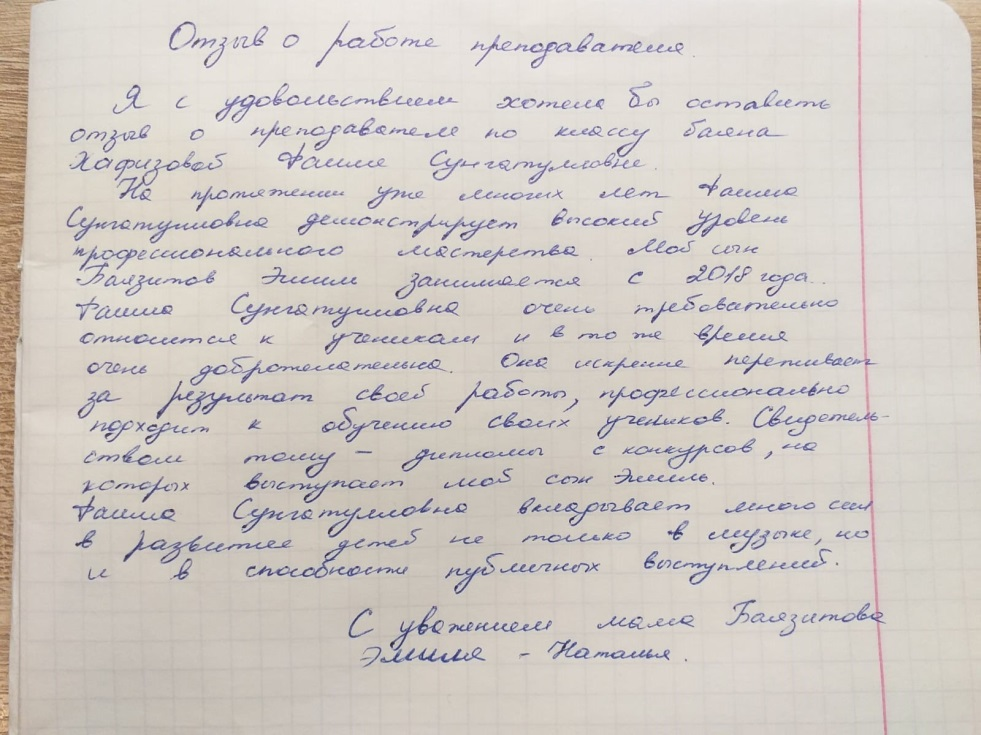 Отзыв о работе преподавателя.
Я с удовольствием хотела бы оставить
отзыв о преподавателе по классу баяна
Хафизовой Фаиме Сунгатулловне.
На протяжении уже многих лет Фаима
Сунгатулловна демонстрирует высокий уровень
профессионального мастерства. Мой сын
Баязитов Эмиль занимается с 2018 года.
Фаима Сунгатулловна очень требовательно
относится к ученикам и в то же время
очень доброжелательна. Она искренне переживает
за результат своей работы, профессионально
подходит к обучению своих учеников. Свидетель-
ством тому – дипломы с конкурсов, на
которых выступает мой сын Эмиль.
Фаима Сунгатулловна вкладывает много сил
в развитие детей не только в музыке, но
и в способности публичных выступлений.
С уважением мама Баязитова
Эмиля – Наталья.